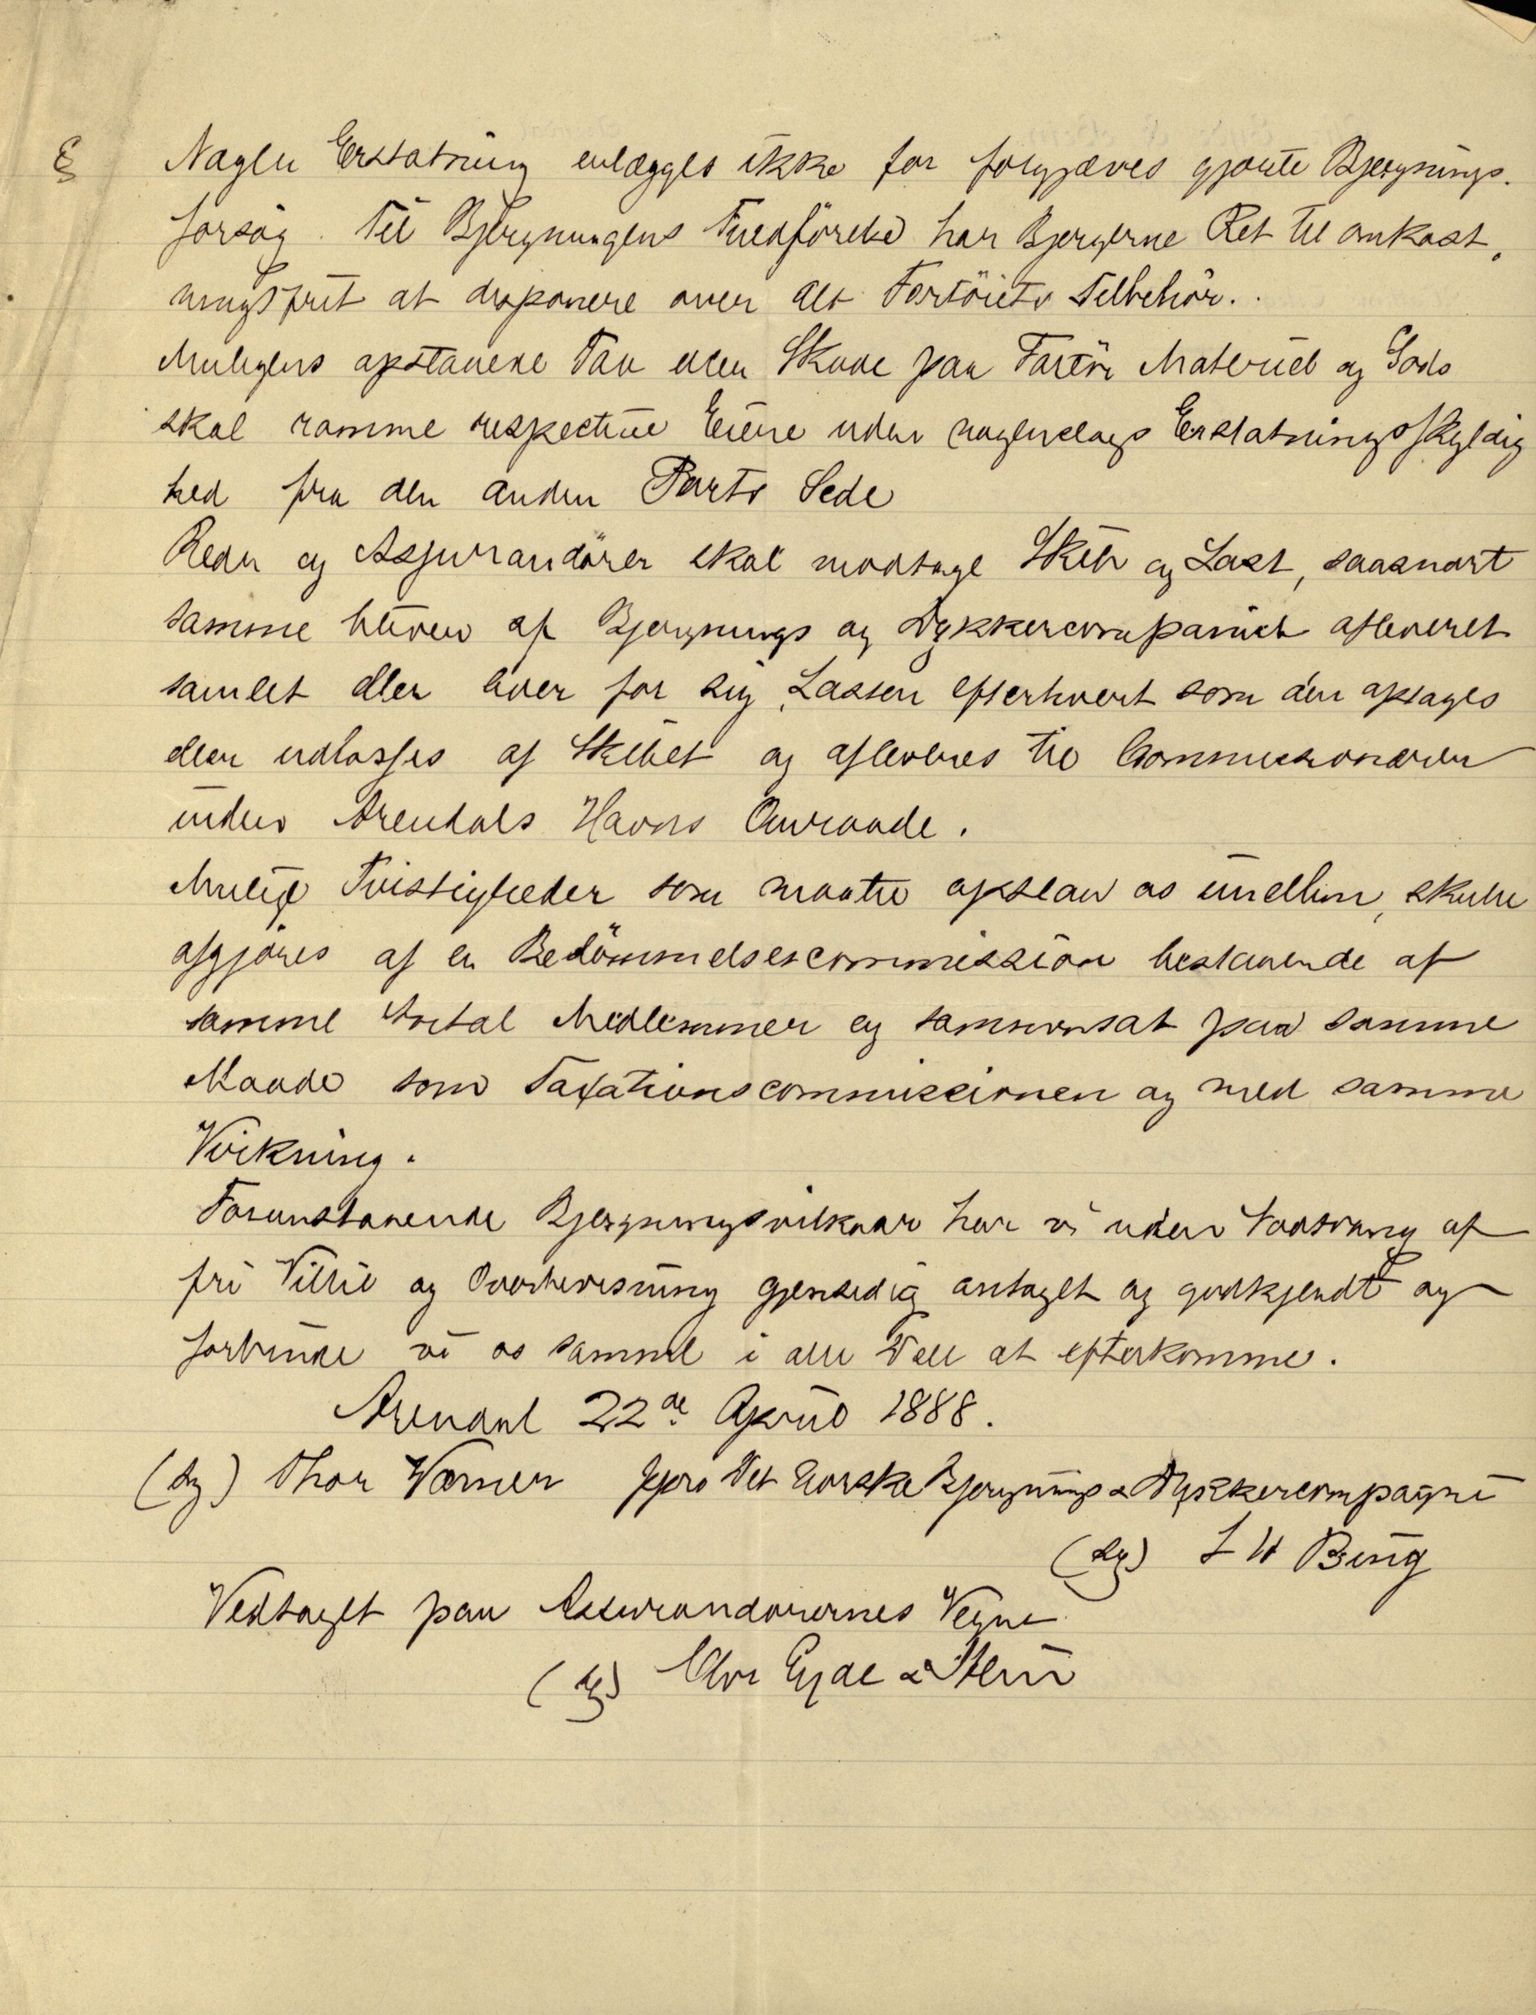 § Noglen Erstatning erlægges ikke for forgjæves gjorte Bjergnings-
forsøg. Til Bjergningens Fuldförelse har Bjergerne Ret til omkost-
ningsfrit at disponere over alt Fartöiets Tilbehör.
Muligens opstaaende Tab eller Skade paa Fartöi Materiel og Gods
skal ramme respective Eiere uden nogenslags Erstatningsskyldig
hed fra den anden Parts Side
Reder og Assurandörer skal modtage Skib og Last, saasnart
samme bliver af Bjergnings og Dykkercompaniet afleveret
samlet eller hver for sig, Lasten efterhvert som den optages
eller udlosses af Skibet og afleveres til Commissionæren
inden Arendals Havns Omraade.
Mulige Tvistigheder som maatte opstaa os imellem, skulle
afgjöres af en Bedömmelsescommission bestaaende af
samme Antal Medlemmer og sammensat paa samme
Maade som Taxationscommissionen og med samme
Virkning.
Foranstaaende Bjergningsvilkaar har vi uden Tvang af
fri Villie og Overbevisning gjensidig antaget og godkjendt og
forbinde vi os samme i alle Dele at efterkomme.
Arendal 22de April 1888.
(sg) Thor Werner ppro Det Norske Bjergnings & Dykkercompagni
(sg) L W Bing
Vedtaget paa Assurandørernes Vegne
(sg) Chr Eyde & Sten